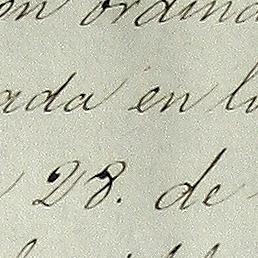 on ordina
ada en l
28. de